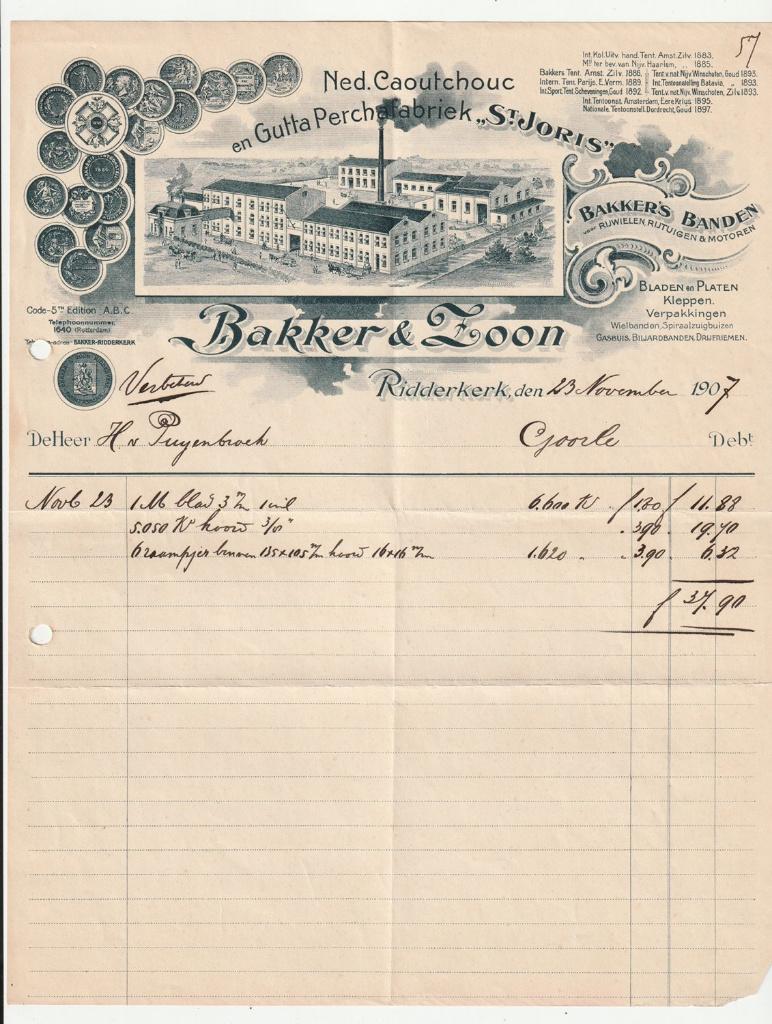 57
Int. Kol. Uitv. hand. Tent. Amst. Zilv. 1883.
Mij ter bev. van Nijv. Haarlem, „ 1885.
Bakkers Tent. Amst. Zilv. 1886. Tent. v. nat. Nijv. Winschoten, Goud 1893.
Intern. Tent. Parijs. E. Verm. 1889. Int. Tentoonstelling Batavia, „ 1893.
Int. Sport. Tent. Scheveningen, Goud 1892. Tent. v. nat. Nijv. Winschoten, Zilv. 1893.
Int. Tentoonst. Amsterdam, Eere Kruis 1895.
Nationale Tentoonstell. Dordrecht, Goud 1897.
Ned. Caoutchouc
en Gutta Perchafabriek „St. Joris"
Bakker's Banden
voor Rijwielen, Rijtuigen & Motoren
Bladen en Platen
Kleppen.
Verpakkingen
Wielbanden, Spiraalzuigbuizen
Gasbuis, Biljardbanden, Drijfriemen.
Code-5TH Edition A.B.C
Telephoonnummer:
1640 (Rotterdam)
Bakker-Ridderkerk
Bakker & Zoon
Verbeterd
Ridderkerk, den 23 November 1907
De Heer H v Puyenbroek Goorle Debt
Novb 23 1 M blad 3 m/m 1 inl 6.600 K f 1.80 f 11.88
5.050 K° koord 3/8" " 3.90 " 19.70
6 raampjes binnen 135x105 m/m koord 16x16 m/m 1.620 " " 3.90 " 6.32
f 37.90